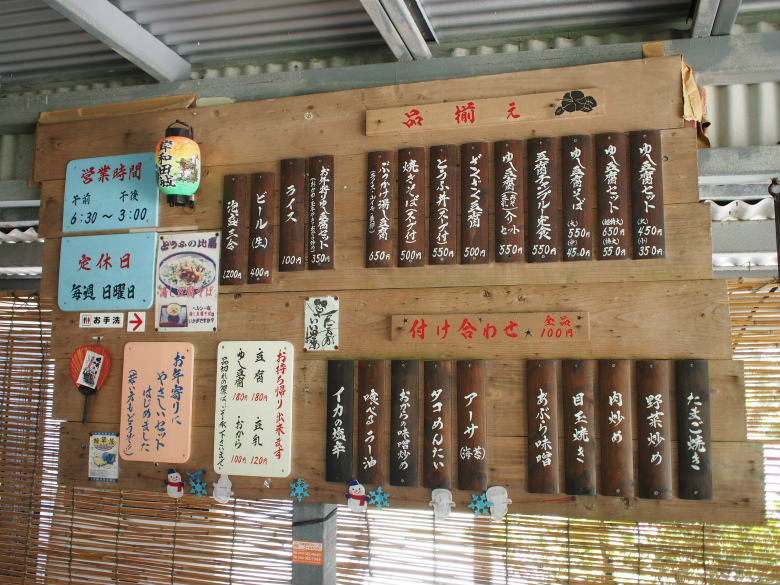 品揃え
ゆし豆腐セット
(大) 450円
(小) 350円
ゆし豆腐セット
(超特大) 650円
(特大) 550円
ゆし豆腐そば
(大) 550円
(中) 450円
豆腐チャンプル定食
550円
ゆし豆腐
セット
550円
500円
とうふ丼(スープ付)
450円
焼きそば(スープ付)
500円
650円
お年寄りゆし豆腐セット
350円
ライス
100円
ビール(生)
400円
泡盛三合
1200円
営業時間
午前 午後
6:30〜3:00
定休日
毎週 日曜日
お手洗
岸和田
とうふの比嘉
付け合わせ 全品100円
たまご焼き
野菜炒め
肉炒め
目玉焼き
あぶら味噌
アーサ(海苔)
タコめんたい
おからの味噌炒め
喰べるラー油
イカの塩辛
お持ち帰り出来ます
豆腐 180円
豆乳 120円
ゆし豆腐 180円
おから 100円
品切れの際はごりょう承下さいませ
お年寄りに
やさしいセット
はじめました
(若い人もどうぞ)